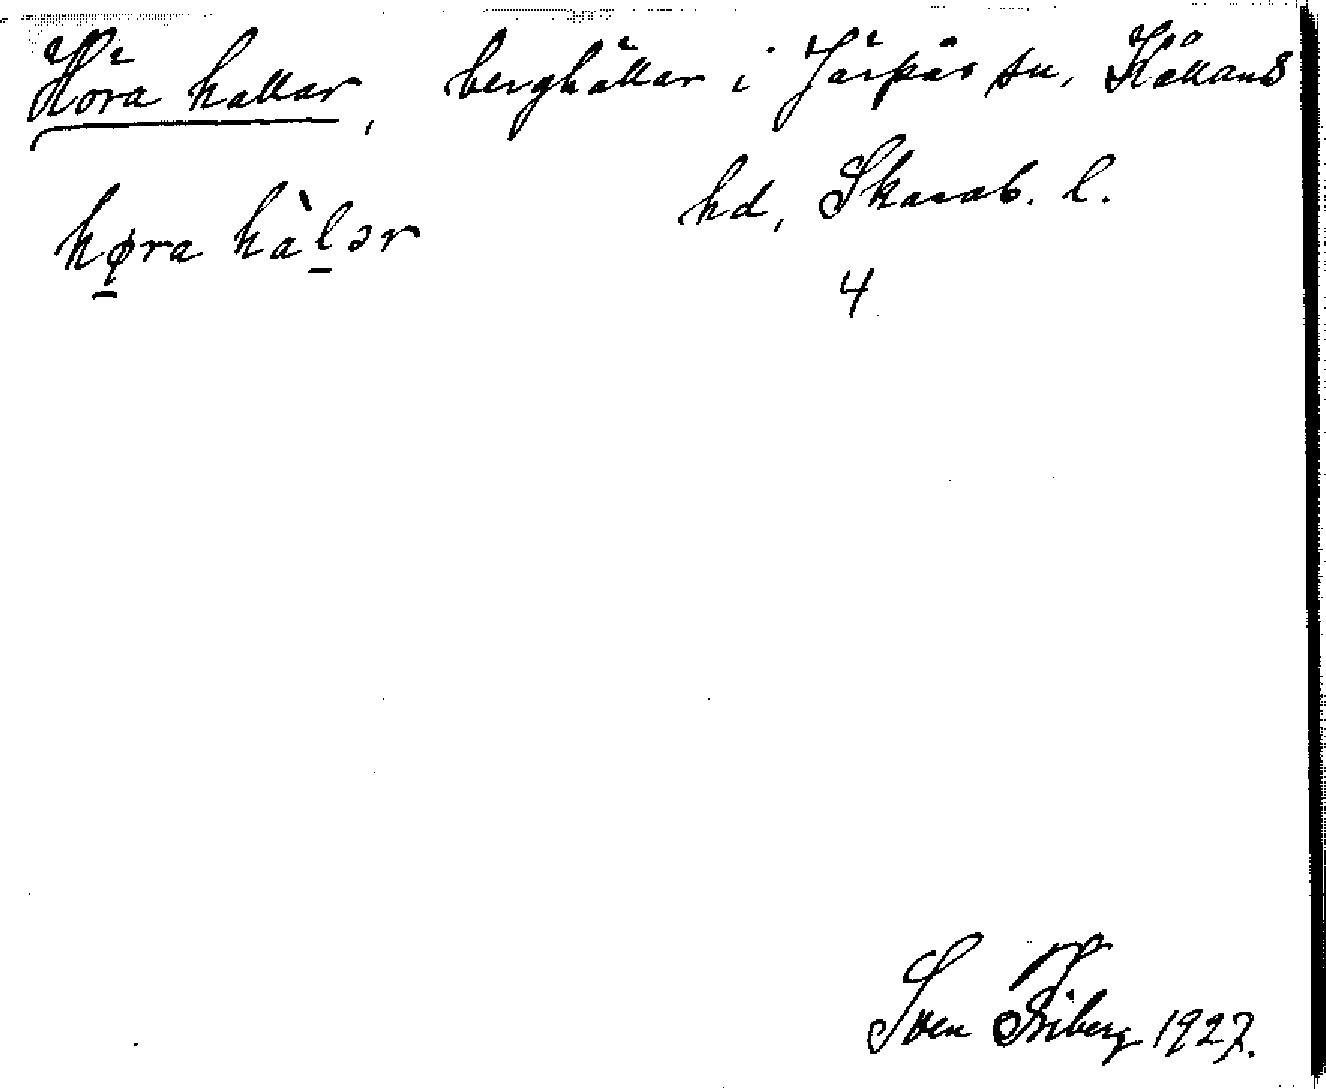 Höra hallar, berghällar i Järpås sn, Kållands
hd, Skarab. l.
hø̱ra hàḻər
4
Sven Friberg 1927.